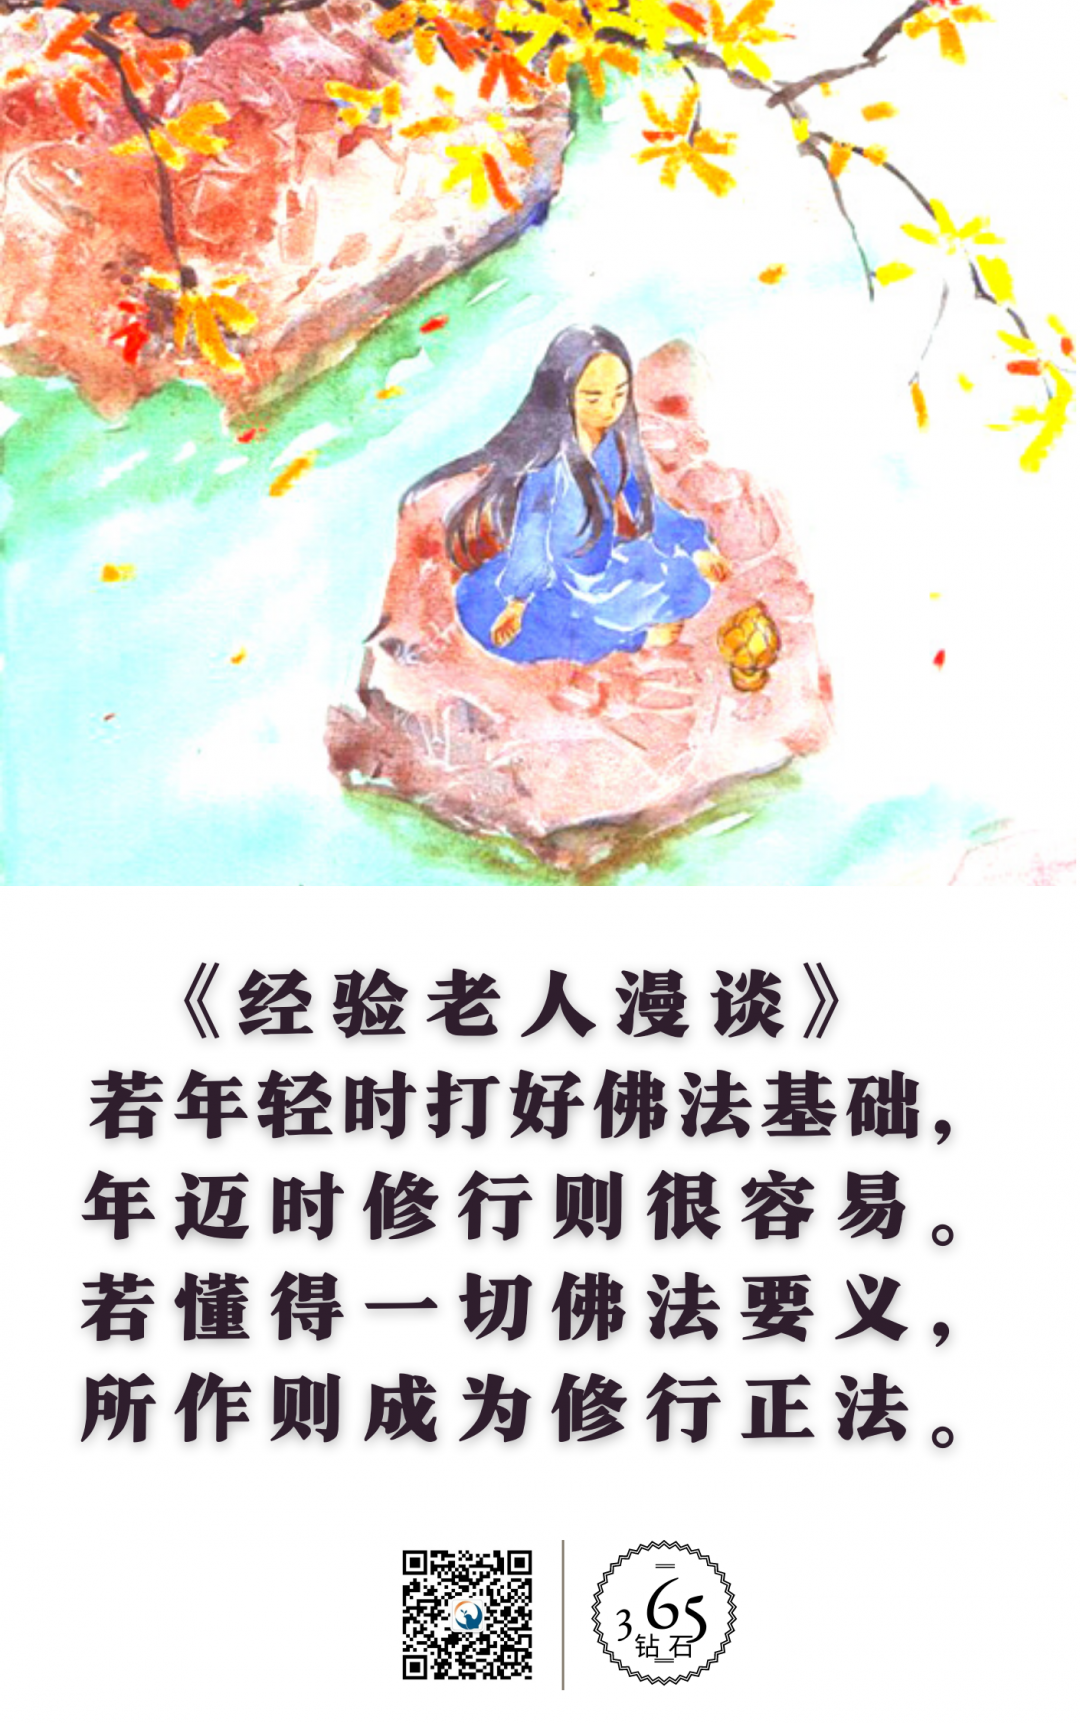 《经验老人漫谈》
若年轻时打好佛法基础，
年迈时修行则很容易。
若懂得一切佛法要义，
所作则成为修行正法。
365
钻石